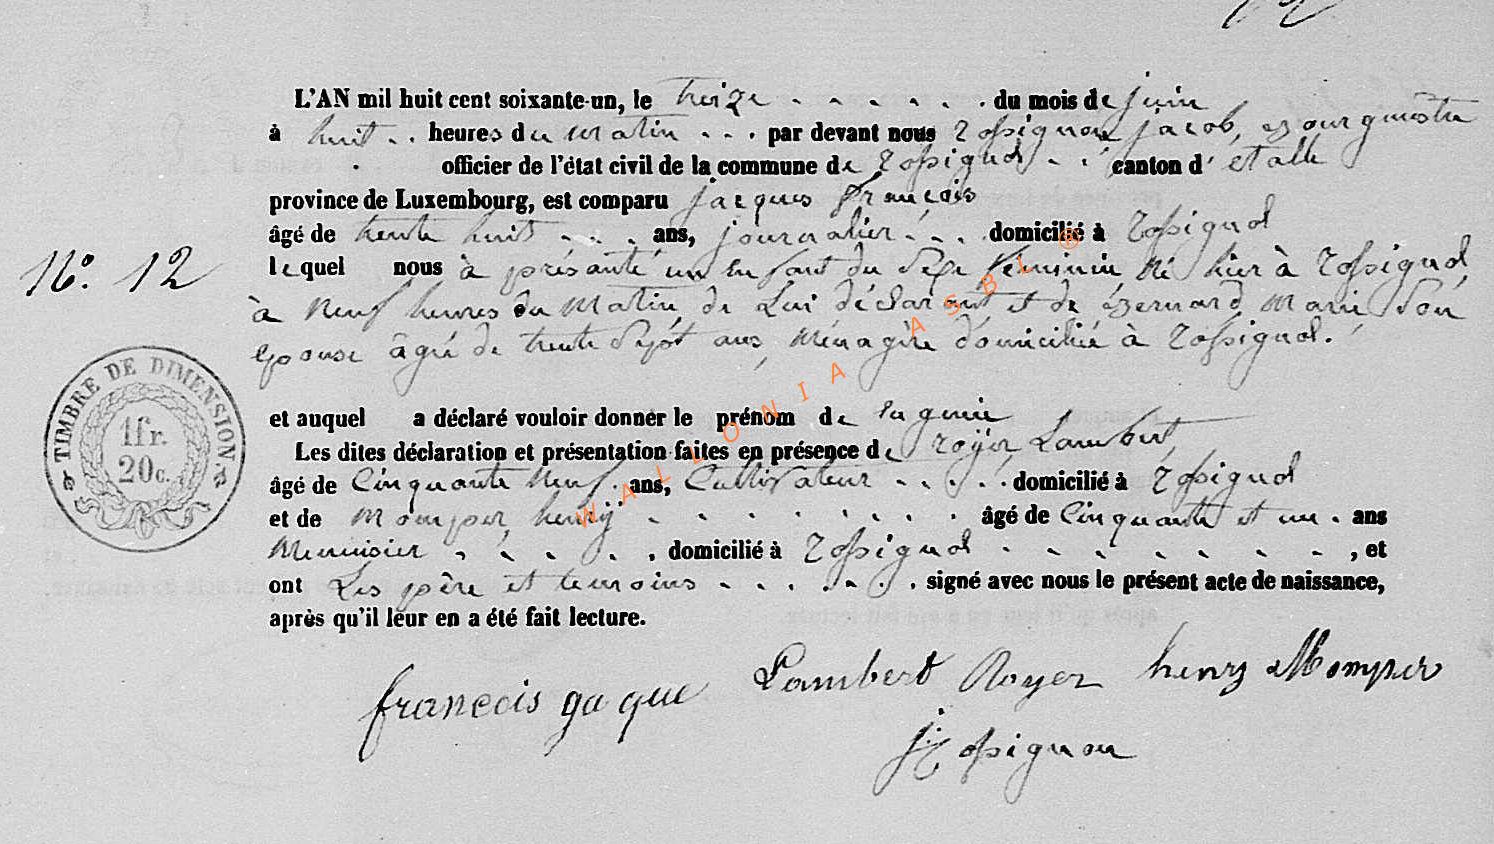 12
L'AN mil huit cent soixante-un, le treize du mois de juin
à huit heures du matin par devant nous Rossignon jacob, Bourgmestre
officier de l'état civil de la commune de Rossignol canton d'étalle
province de Luxembourg, est comparu jacques françois
âgé de trente huit ans, journalier domicilié à Rossignol
N° 12
lequel nous à présanté un Enfant du sexe féminin Né hier à Rossignol
à Neuf heures du Matin, de Lui déclarant et de Bernard Marie Son
épouse âgé de trente Sept ans, Ménagère domiciliée à Rossignol.
TIMBRE DE DIMENSION
1fr.
20c.
et auquel a déclaré vouloir donner le prénom de
Les dites déclaration et présentation faites en présence de royer Lambert,
âgé de Cinquante Neuf ans, Cultivateur domicilié à Rossignol
et de Momper henry âgé de Cinquante et un ans
Menuisier domicilié à Rossignol , et
ont Les père et temoins signé avec nous le présent acte de naissance,
après qu'il leur en a été fait lecture.
francois gaque Lambert Royer henry Momper
j Rossignon
WALLONIA ASBL ®